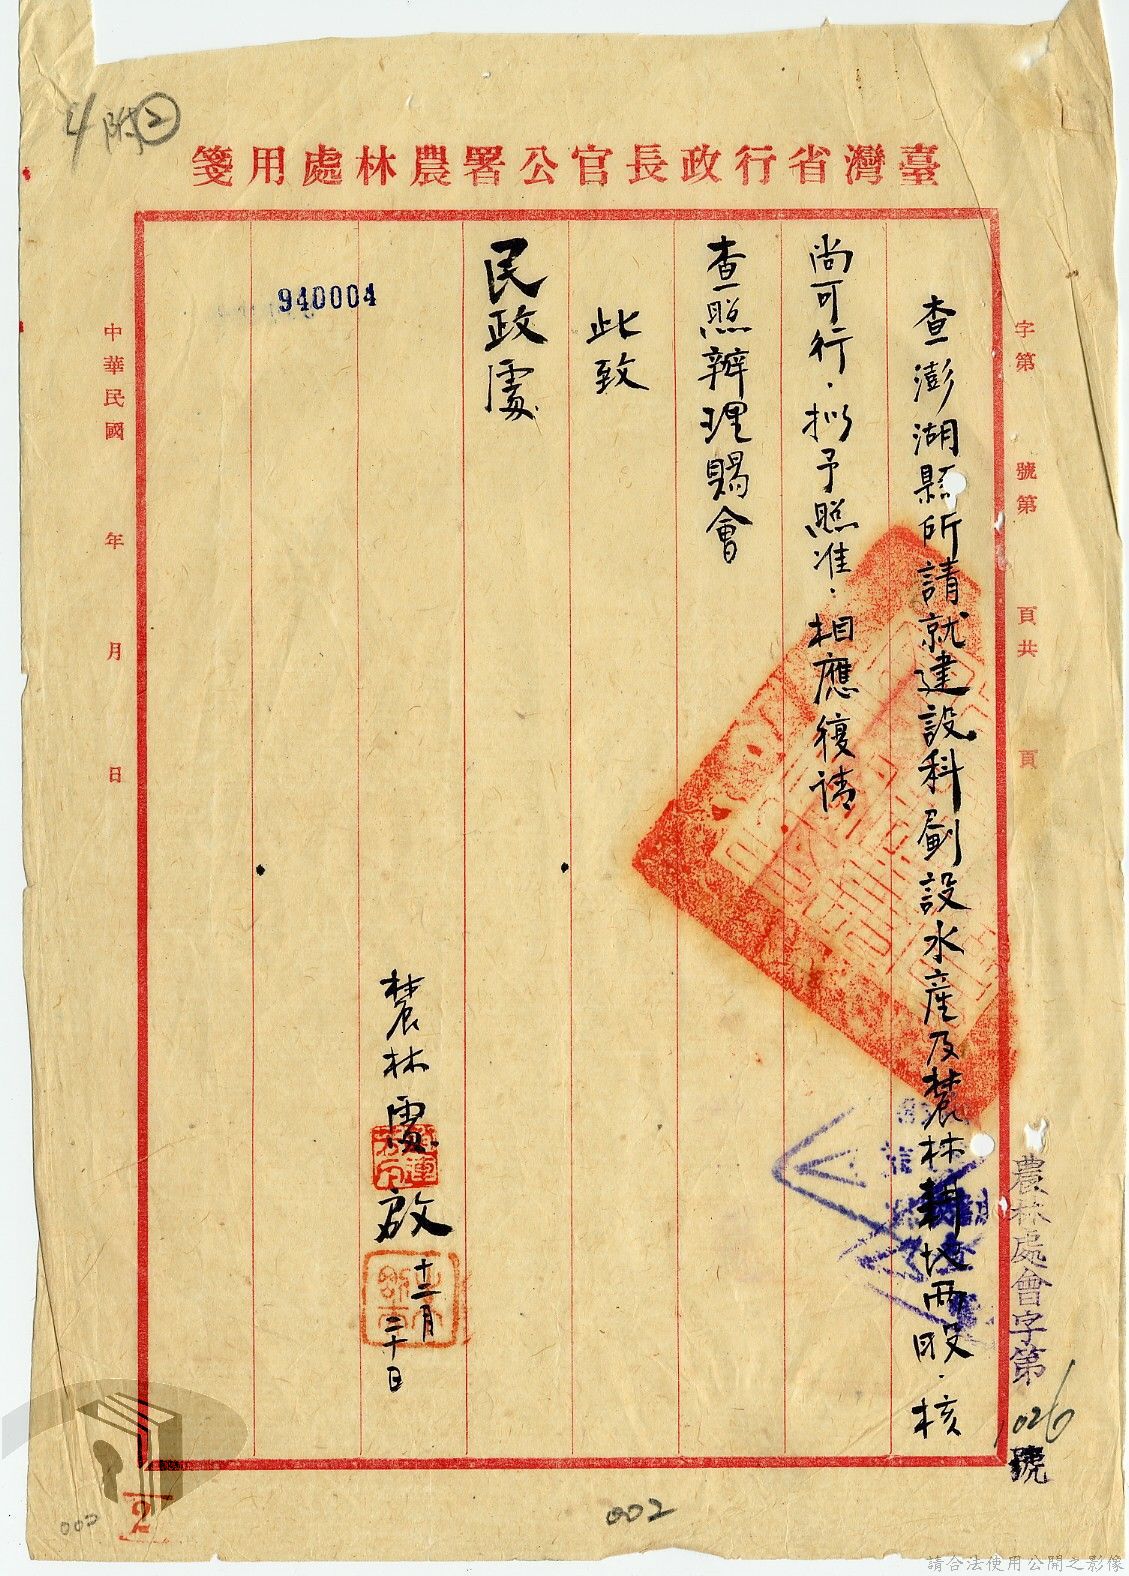 4附②
臺灣省行政長官公署農林處用箋
字第　號第　頁共　頁
農林處會字第1026號
查澎湖縣所請就建設科劃設水產及農林耕地兩股．核
尚可行．擬予照准．相應復請
查照辦理賜會
此致
民政處
農林處啟
十二月二十日
940004
中華民國　年　月　日
002
002
2
請合法使用公開之影像